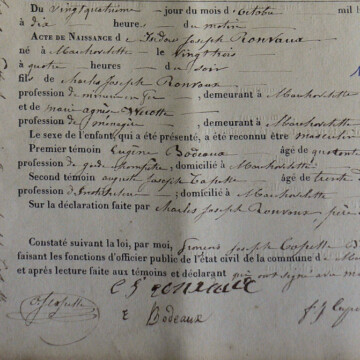 Du vingt quatrième jour du mois d'octobre mil
à dix heure du matin
ACTE DE NAISSANCE d'Isidore Joseph Ronvaux
né à Marchovelette le vingt trois
à quatre heures du soir
fils de Charles Joseph Ronvaux
profession de , demeurant à Marchovelette
et de marie agnès
profession de ménagère , demeurant à Marchovelette
Le sexe de l'enfant, qui a été présenté, a été reconnu être masculin
Premier témoin Eugène Bodeaux âgé de quarante
profession de garde champêtre, domicilié à Marchovelette
Second témoin auguste Joseph Capelle âgé de trente
profession d'instituteur ; domicilié à Marchovelette
Sur la déclaration faite par Charles Joseph Ronvaux père
Constaté suivant la loi, par moi, Joseph Capelle
faisant les fonctions d'officier public de l'état civil de la commune d
et après lecture faite aux témoins et déclarant qui ont signé
E Bodeaux